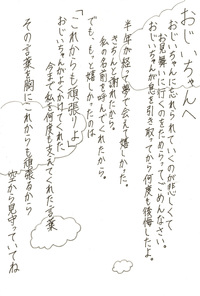 おじいちゃんへ
おじいちゃんに忘れられていくのが悲しくて
お見舞いに行くのをためらってごめんなさい。
おじいちゃんが息を引き取ってから何度も後悔したよ。
半年が経って夢で会えて嬉しかった。
きちんと謝れたから。
私の名前を呼んでくれたから。
でも、もっと嬉しかったのは
「これからも頑張りよ」
おじいちゃんがよくかけてくれた
今まで私を何度も支えてくれた言葉
その言葉を胸にこれからも頑張るから
空から見守っていてね